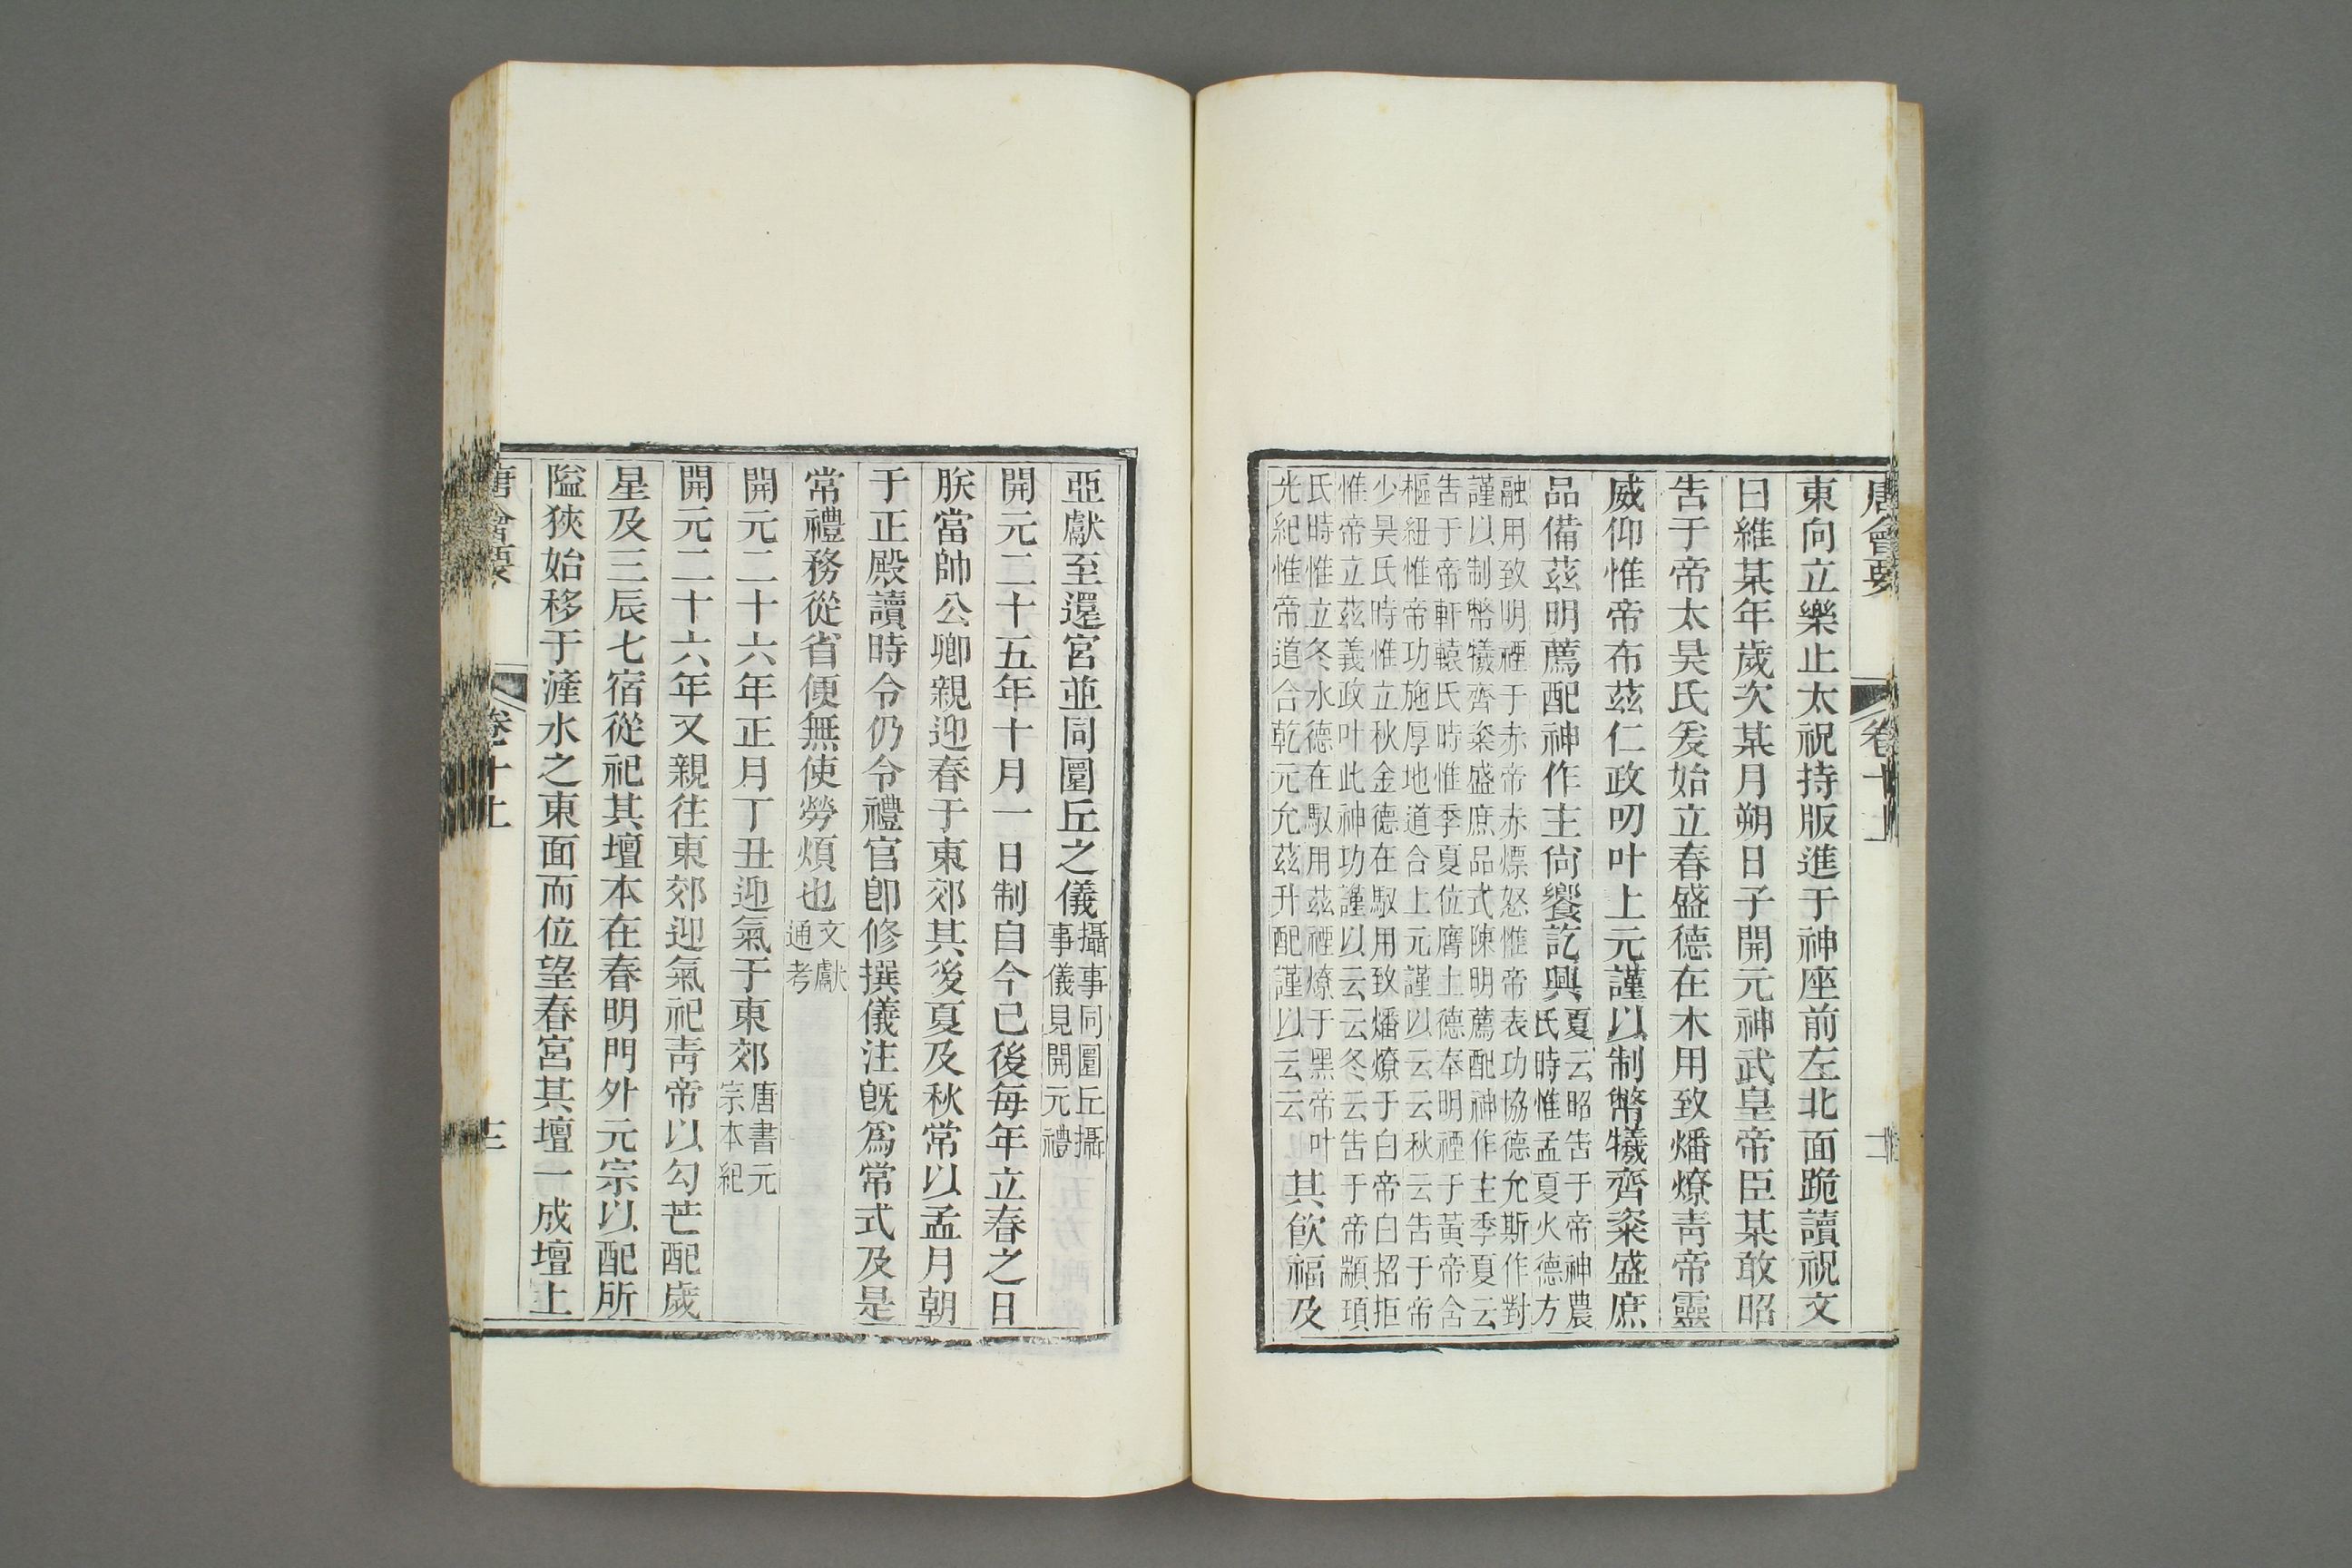 唐會要 卷十上
東向立樂止太祝持版進于神座前左北面跪讀祝文
曰維某年歲次某月朔日子開元神武皇帝臣某敢昭
告于帝太昊氏爰始立春盛德在木用致燔燎靑帝靈
威仰惟帝布茲仁政叨叶上元謹以制幣犧齊粢盛庶
品備茲明薦配神作主尙饗訖興夏云昭告于帝神農
氏時惟孟夏火德方
融用致明禋于赤帝赤熛怒惟帝表功協德允斯作對
謹以制幣犧齊粢盛庶品式陳明薦配神作主季夏云
告于帝軒轅氏時惟季夏位膺土德奉明禋于黃帝含
樞紐惟帝功施厚地道合上元謹以云云秋云告于帝
少昊氏時惟立秋金德在馭用致燔燎于白帝白招拒
惟帝立茲義政叶此神功謹以云云冬云告于帝顓頊
氏時惟立冬水德在馭用茲禋燎于黑帝叶
光紀惟帝道合乾元允茲升配謹以云云其飮福及
亞獻至還宮並同圜丘之儀攝事同圜丘攝
事儀見開元禮
開元二十五年十月一日制自今已後每年立春之日
朕當帥公卿親迎春于東郊其後夏及秋常以孟月朝
于正殿讀時令仍令禮官卽修撰儀注旣爲常式及是
常禮務從省便無使勞煩也文獻
通考
開元二十六年正月丁丑迎氣于東郊唐書元
宗本紀
開元二十六年又親往東郊迎氣祀靑帝以勾芒配歲
星及三辰七宿從祀其壇本在春明門外元宗以配所
隘狹始移于滻水之東面而位望春宮其壇一成壇上
唐會要 卷十上